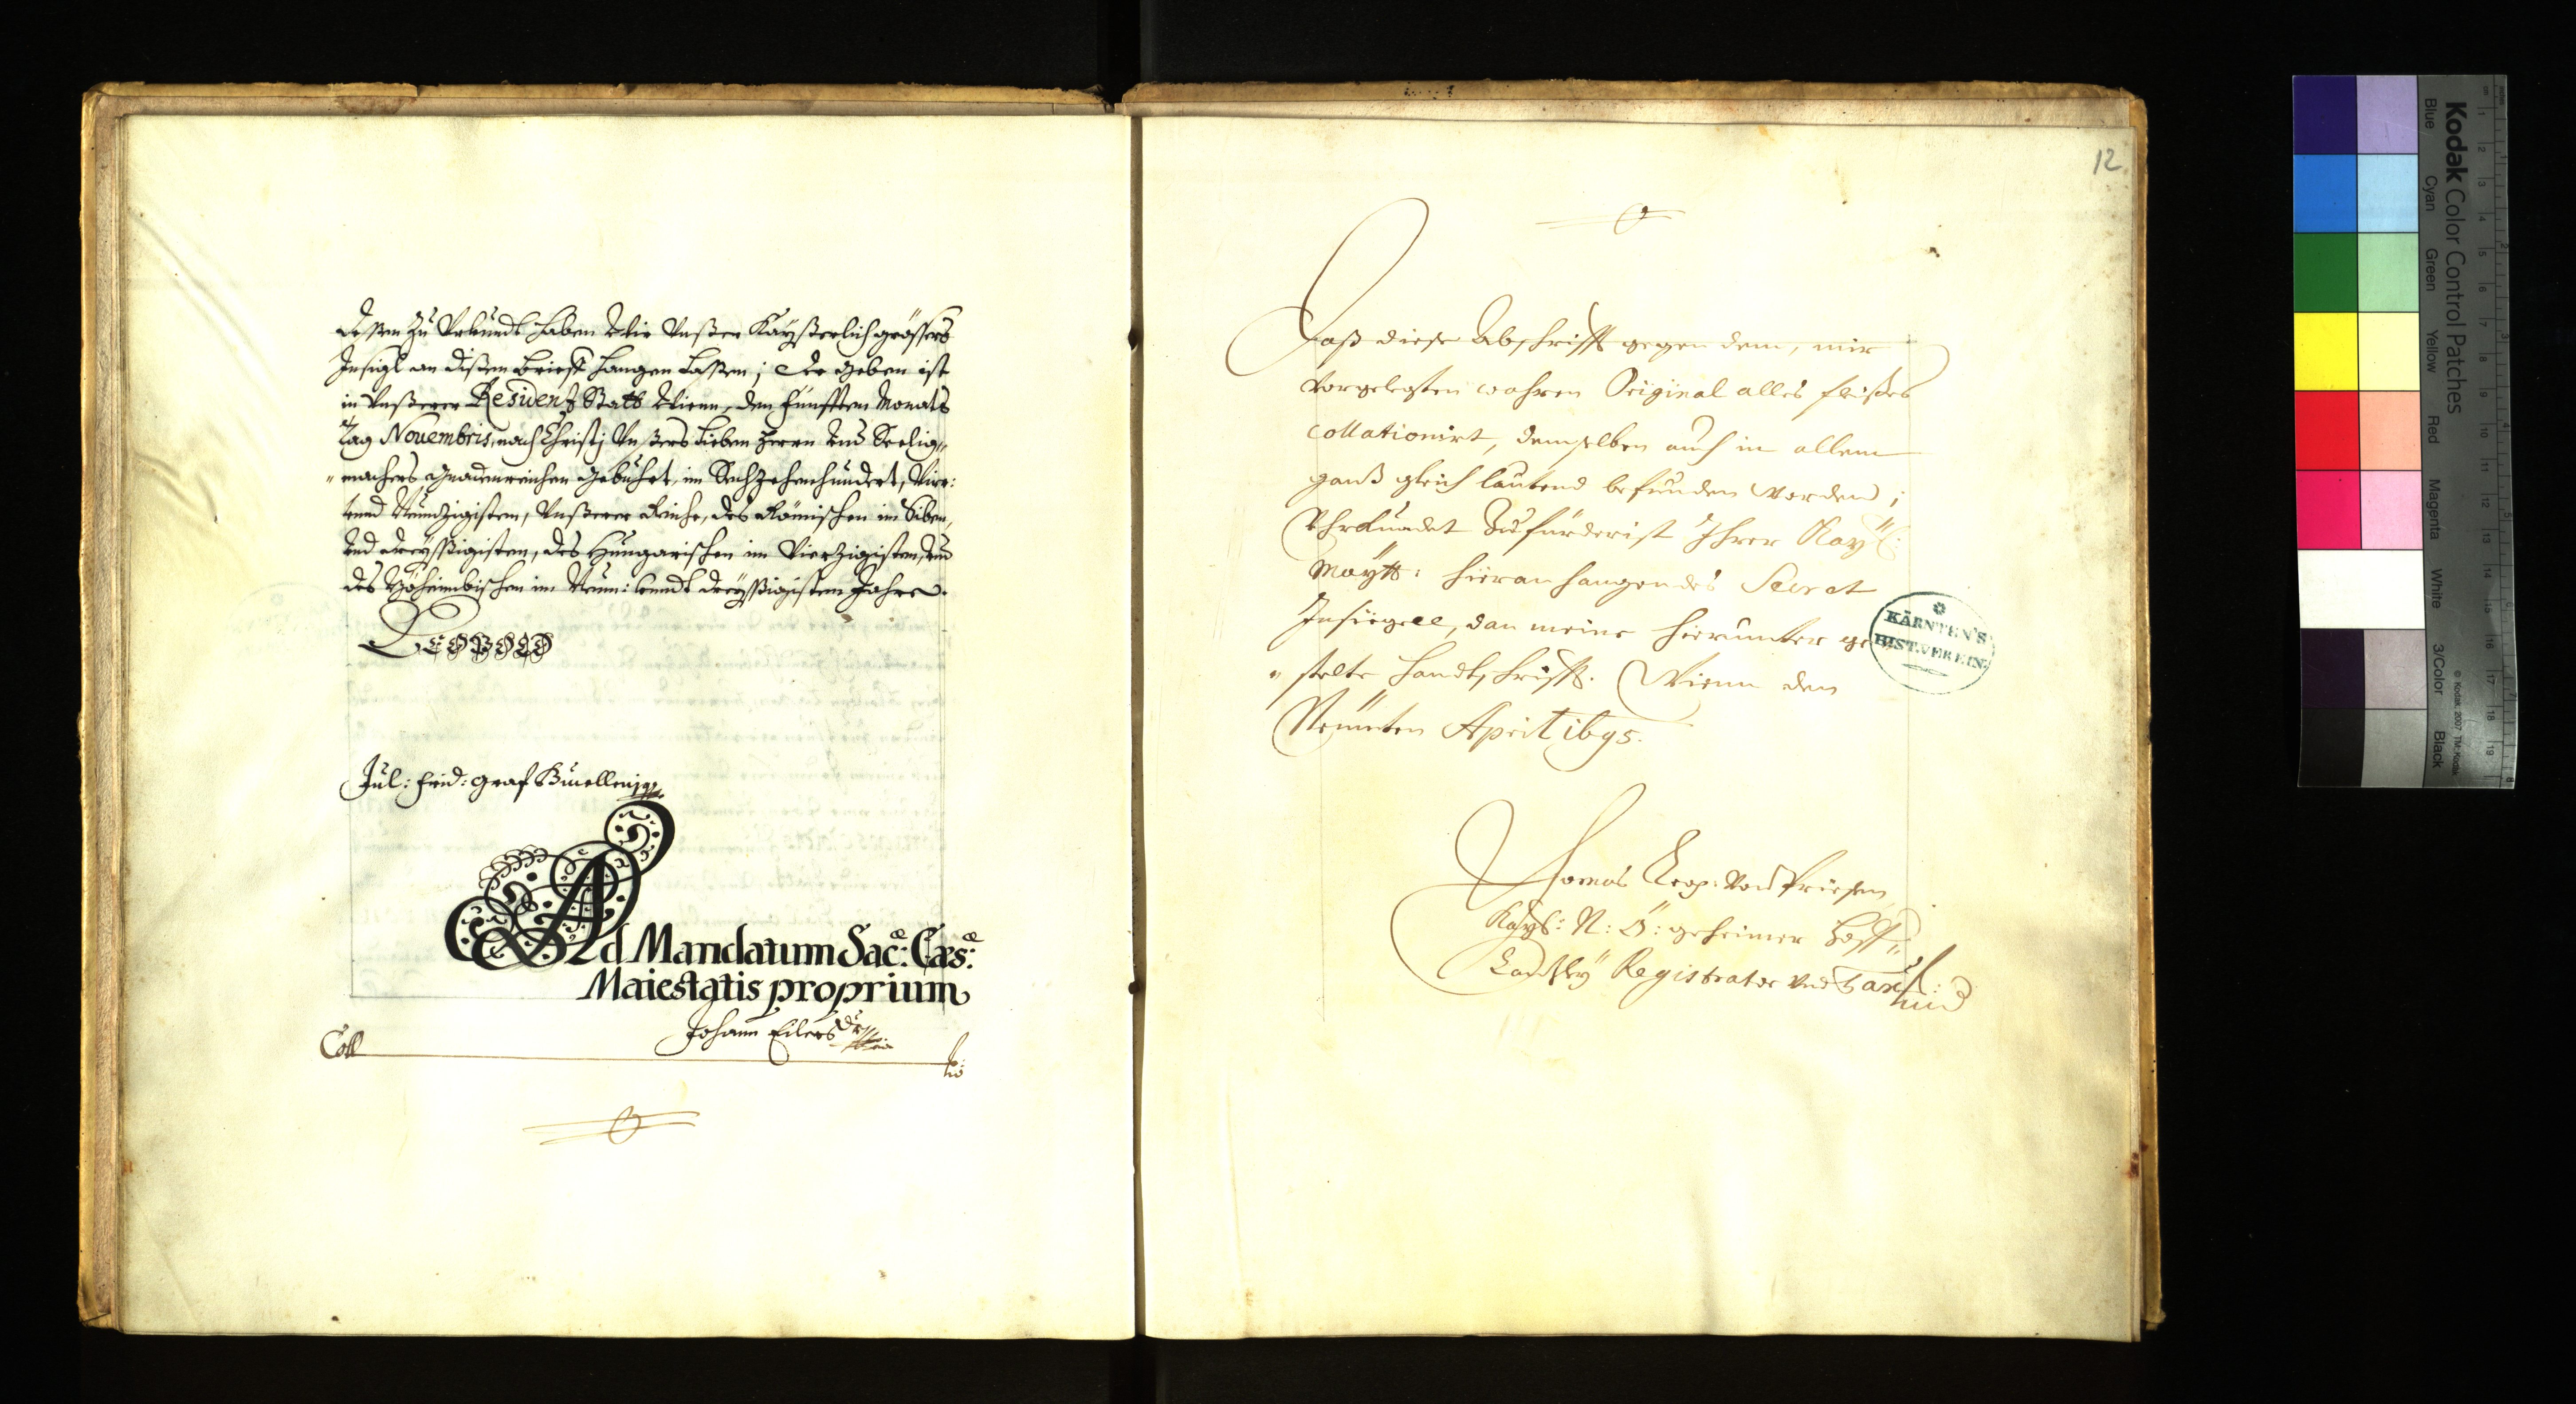 dessen zu Urkundt haben Wir Unßer Kayßerlich grösßers
Insigl an dißem brieff hangen lassen; der geben ist
in Unßerer Residentz Statt Wienn, den fünfften Monats
tag Nouembris, nach Christj Unßers lieben Herrn und Seelig„
„machers gnadenreichen gebuhrt, im Sechzehenhundert, Vier:
unnd Neunzigisten, Unßerer Reiche, des Römischen im Siben„
und dreyssigisten, des Hungarischen im Vierzigisten, und
des Böheimbischen im Neun: unndt dreyssigistem Jahre.
LEOPOLD
Jul: frid: graf Bucelleni
Ad Mandatum Sac:æ Cæs:æ
Maiestatis proprium
Johann Eilers
Coll
12
Daß diese Abschrifft gegen dem, mir
vorgelegten wahren Original alles fleißes
collationirt, demselben auch in allem
ganß gleich lautend befunden worden;
Uhrkundet zuforderist Ihrer Kayl:
Maytt: hieranhangendes Secret
Insiegell, dan meine hierunter ge
„stelte handtschrifft. Wienn den
Neünten April 1695.
Thomas Leop: von Friesen
Kayß: N: Ö: geheimer Hoff„
Canzley Registrator und Taxa
KÄRNTEN'S
HIST. VEREIN.
Kodak Color Control Patches
Blue Cyan Green Yellow Red Magenta White 3/Color Black
© Kodak, 2007 TM: Kodak